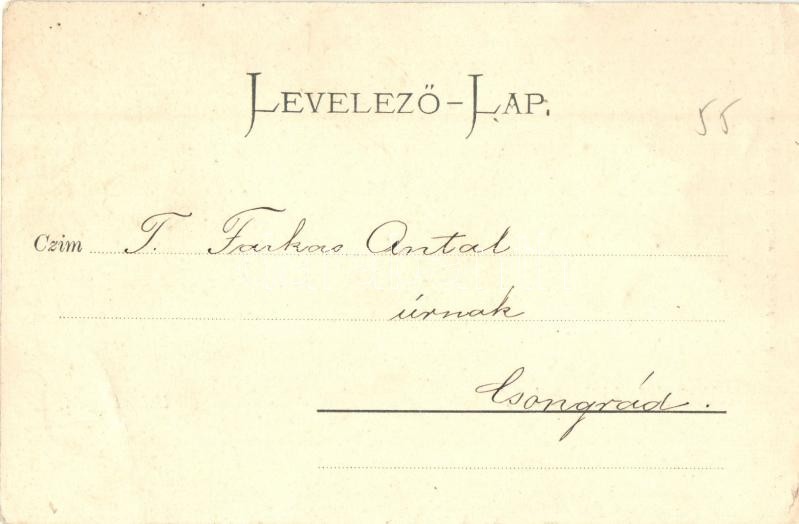 LEVELEZŐ-LAP.
55
Czim T. Farkas Antal
úrnak
Csongrád.